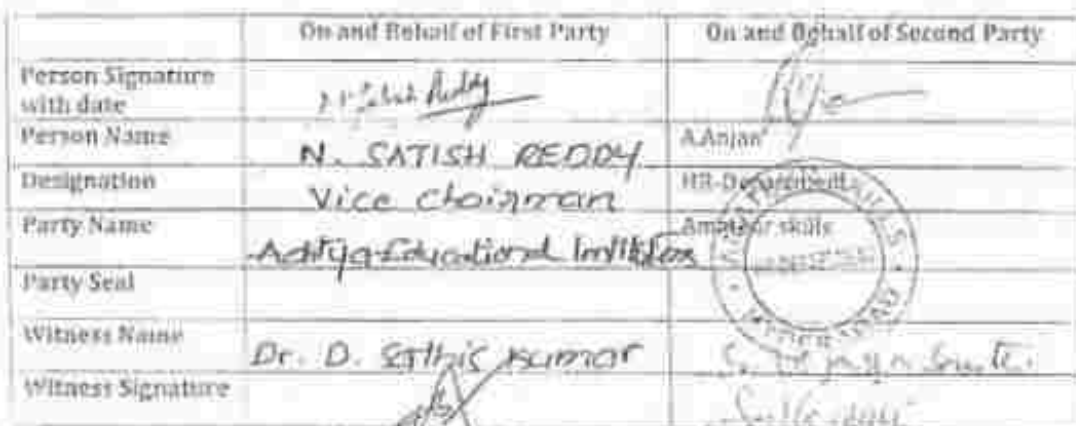 On and Behalf of First Party On and Behalf of Second Party
Person Signature
with date Reddy
Person Name N. SATISH REDDY A.Anjan
Designation Vice Chairman HR-Department
Party Name Aditya Educational Institutions Amateur skills
Party Seal
Witness Name Dr. D. Sathis Kumar
Witness Signature